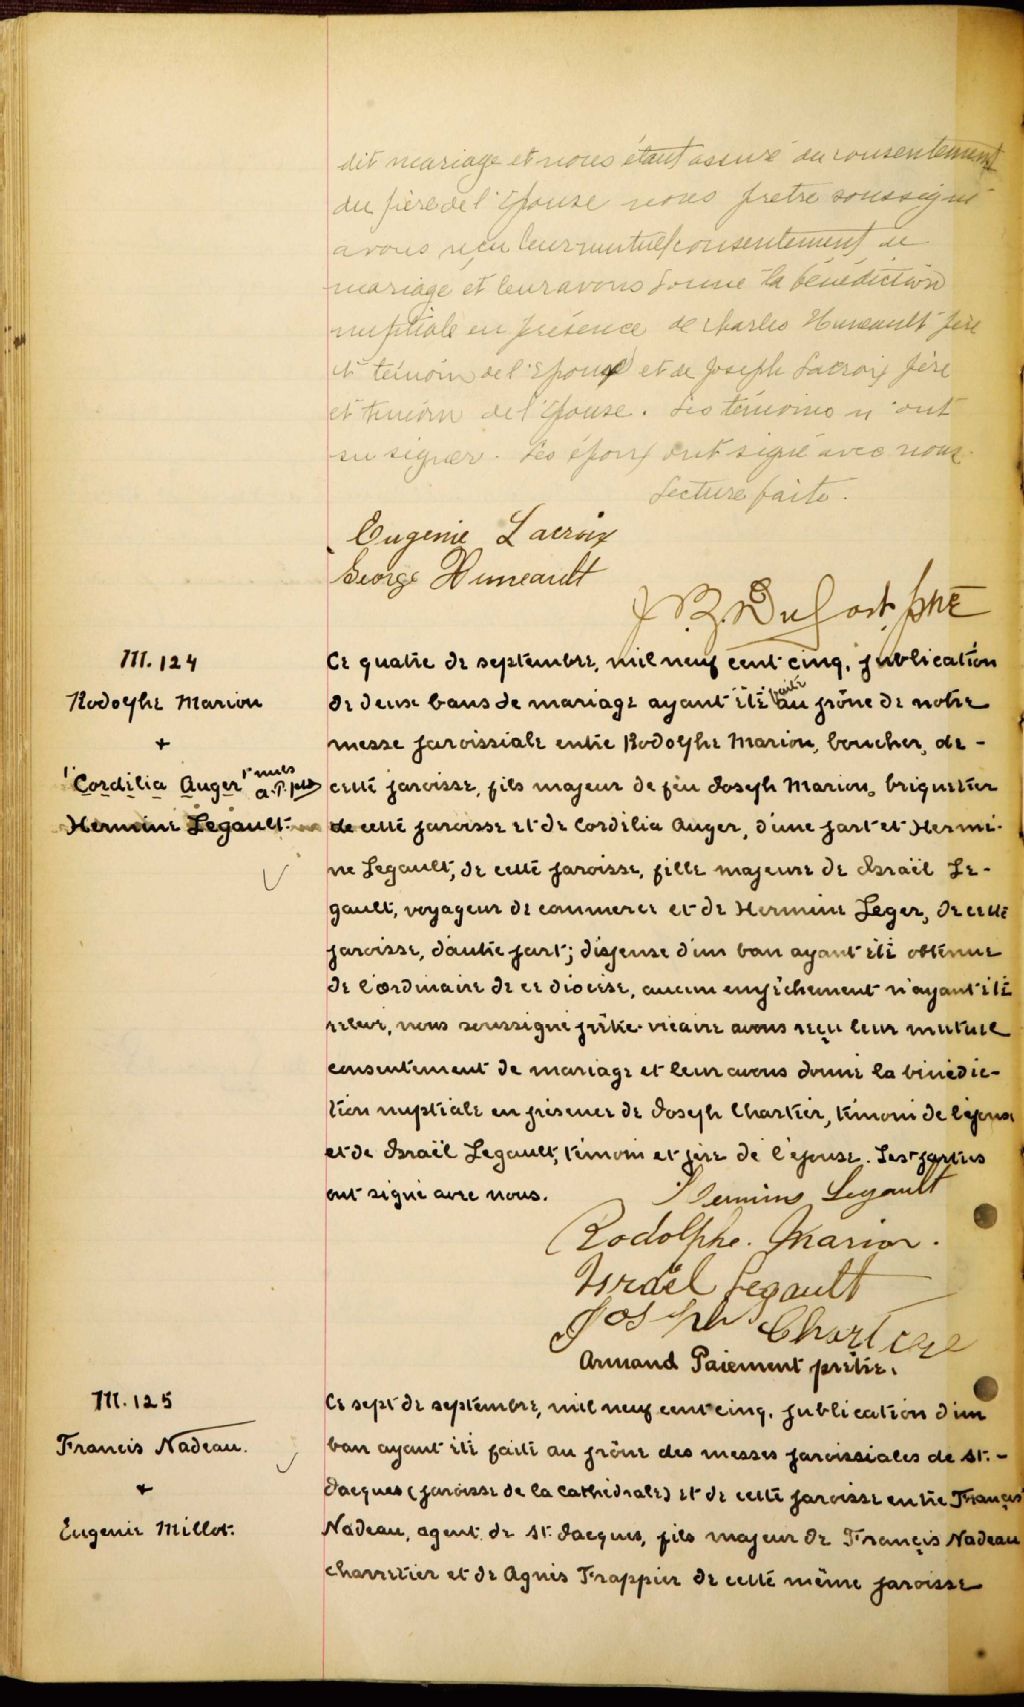 dit mariage et nous étant assuré du consentement
du père de l'Epouse nous prêtre soussigné
avons reçu leur mutuel consentement de
mariage et leur avons donné la bénédiction
nuptiale en présence de Charles Huneault père
et témoin de l'Epoux et de Joseph Lacroix père
et témoin de l'Epouse. Les témoins n'ont
su signer. Les époux ont signé avec nous.
Lecture faite.
Eugenie Lacroix
George Huneault
J. B. Dufort ptre
M. 124
Rodolphe Marion
+
"Cordélia Auger" nuls
A.P. ptre
Hermine Legault
Ce quatre de septembre, mil neuf cent cinq, publication
de deux bans de mariage ayant été faite au prône de notre
messe paroissiale entre Rodolphe Marion, boucher, de -
cette paroisse, fils majeur de feu Joseph Marion, briquetier
de cette paroisse et de Cordélia Auger, d'une part et Hermi-
ne Legault, de cette paroisse, fille majeure de Israël Le-
gault, voyageur de commerce et de Hermine Leger, de cette
paroisse, d'autre part; dispense d'un ban ayant été obtenue
de l'ordinaire de ce diocèse, aucun empêchement n'ayant été
relevé, nous soussigné prêtre-vicaire avons reçu leur mutuel
consentement de mariage et leur avons donné la bénédic-
tion nuptiale en présence de Joseph Chartier, témoin de l'époux
et de Israël Legault, témoin et père de l'épouse. Les parties
ont signé avec nous.
Hermine Legault
Rodolphe. Marion.
Israël Legault
Joseph Chartier
Armand Paiement prêtre.
M. 125
Francis Nadeau.
+
Eugenie Millot.
Ce sept de septembre, mil neuf cent cinq, publication d'un
ban ayant été faite au prône des messes paroissiales de St.-
Jacques (paroisse de la cathédrale) et de cette paroisse entre François
Nadeau, agent de St. Jacques, fils majeur de François Nadeau
charretier et de Agnès Frappier de cette même paroisse